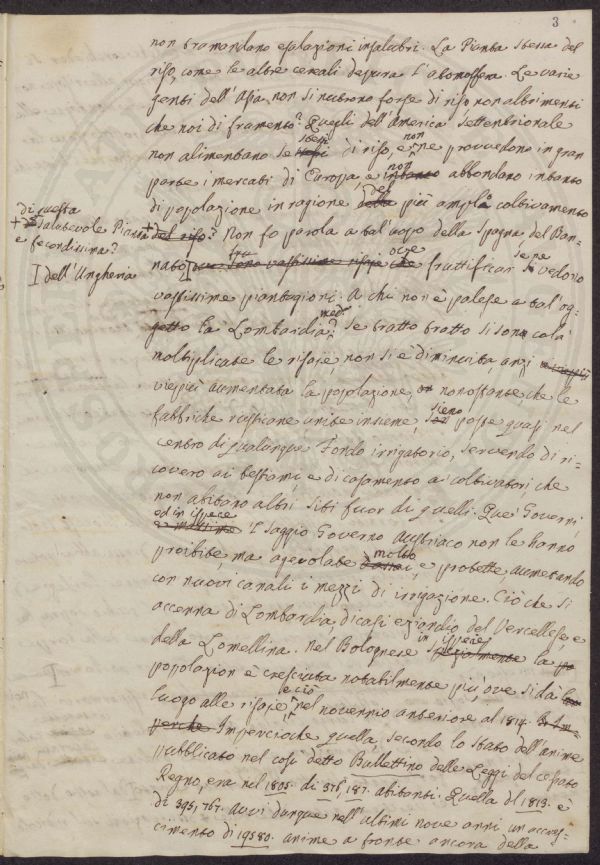 3
non tramandano esalazioni insalubri. La Pianta stessa del
riso, come le altre cereali depura l'atmosfera. Le varie
genti dell'Asia non si nutrono forse di riso non altrimenti
che noi di frumento? Quegli dell'America Settentrionale
non alimentano se stessi di riso, e non ne provvedono in gran
parte i mercati di Europa, e non abbondano intanto
di popolazione in ragione del più amplo coltivamento
di questa
+ salutevole Pianta
e fecondissima?
+ del riso? Non fo parola a tal'uopo della Spagna, del Ban-
I dell'Ungheria
nato I ove fruttificar se ne vedono
vastissime piantagioni. A chi non è palese a tal og-
getto la Lombardia med.? Se tratto tratto si sono colà
moltiplicate le risaje, non si è diminuita anzi
vieppiù aumentata la popolazione, nonostante, che le
fabbriche rusticane unite insieme, sieno poste quasi nel
centro di qualunque Fondo irrigatorio, servendo di ri-
covero ai bestiami, e di casamento a' coltivatori, che
non abitano altri siti fuor di quelli. Que' Governi,
ed in ispecie
e massime l'saggio Governo Austriaco non le hanno
proibite, ma agevolate molto, e protette, aumentando
con nuovi canali i mezzi di irrigazione. Ciò che si
accenna di Lombardia, dicasi eziandio del Vercellese, e
della Lomellina. Nel Bolognese in ispecie la
popolazion è cresciuta notabilmente più, ove si dà
luogo alle risaje, e ciò nel novennio anteriore al 1814.
perchè Imperciochè quella, secondo lo stato dell'anime
pubblicato nel così detto Bullettino delle Leggi del cessato
Regno, era nel 1805. di 376,187. abitanti. Quella del 1813. è
di 395,767. Avvi dunque nell'ultimi nove anni un accres-
cimento di 19580. anime a fronte ancora della